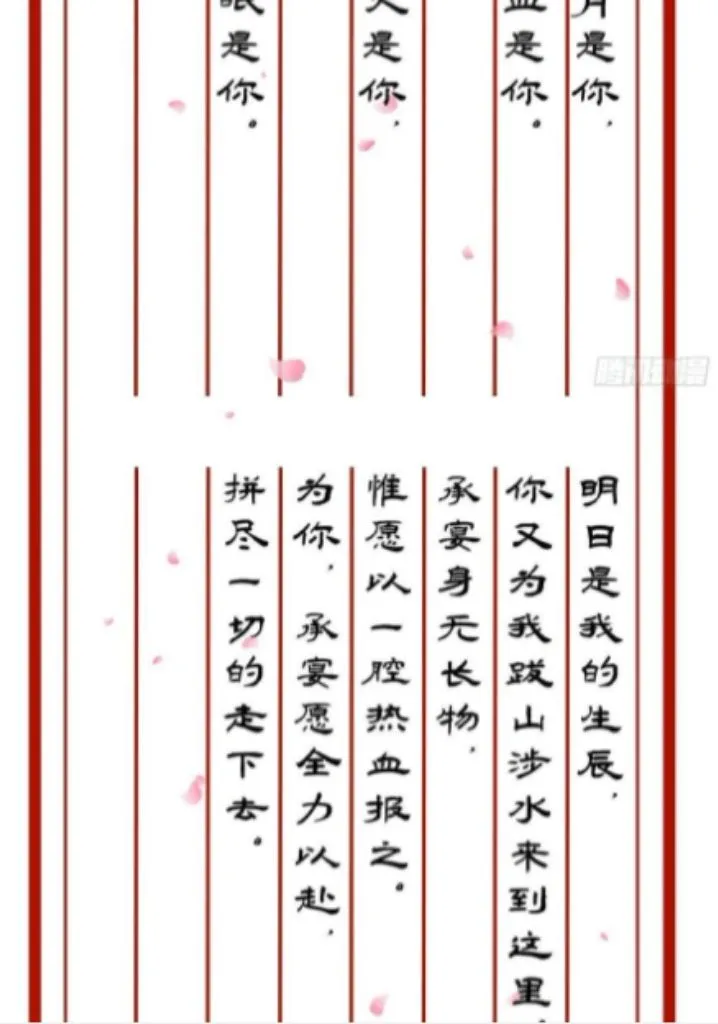 是你，
是你。
是你，
是你。
明日是我的生辰，
你又为我跋山涉水来到这里，
承宴身无长物，
惟愿以一腔热血报之。
为你，承宴愿全力以赴，
拼尽一切的走下去。
腾讯动漫